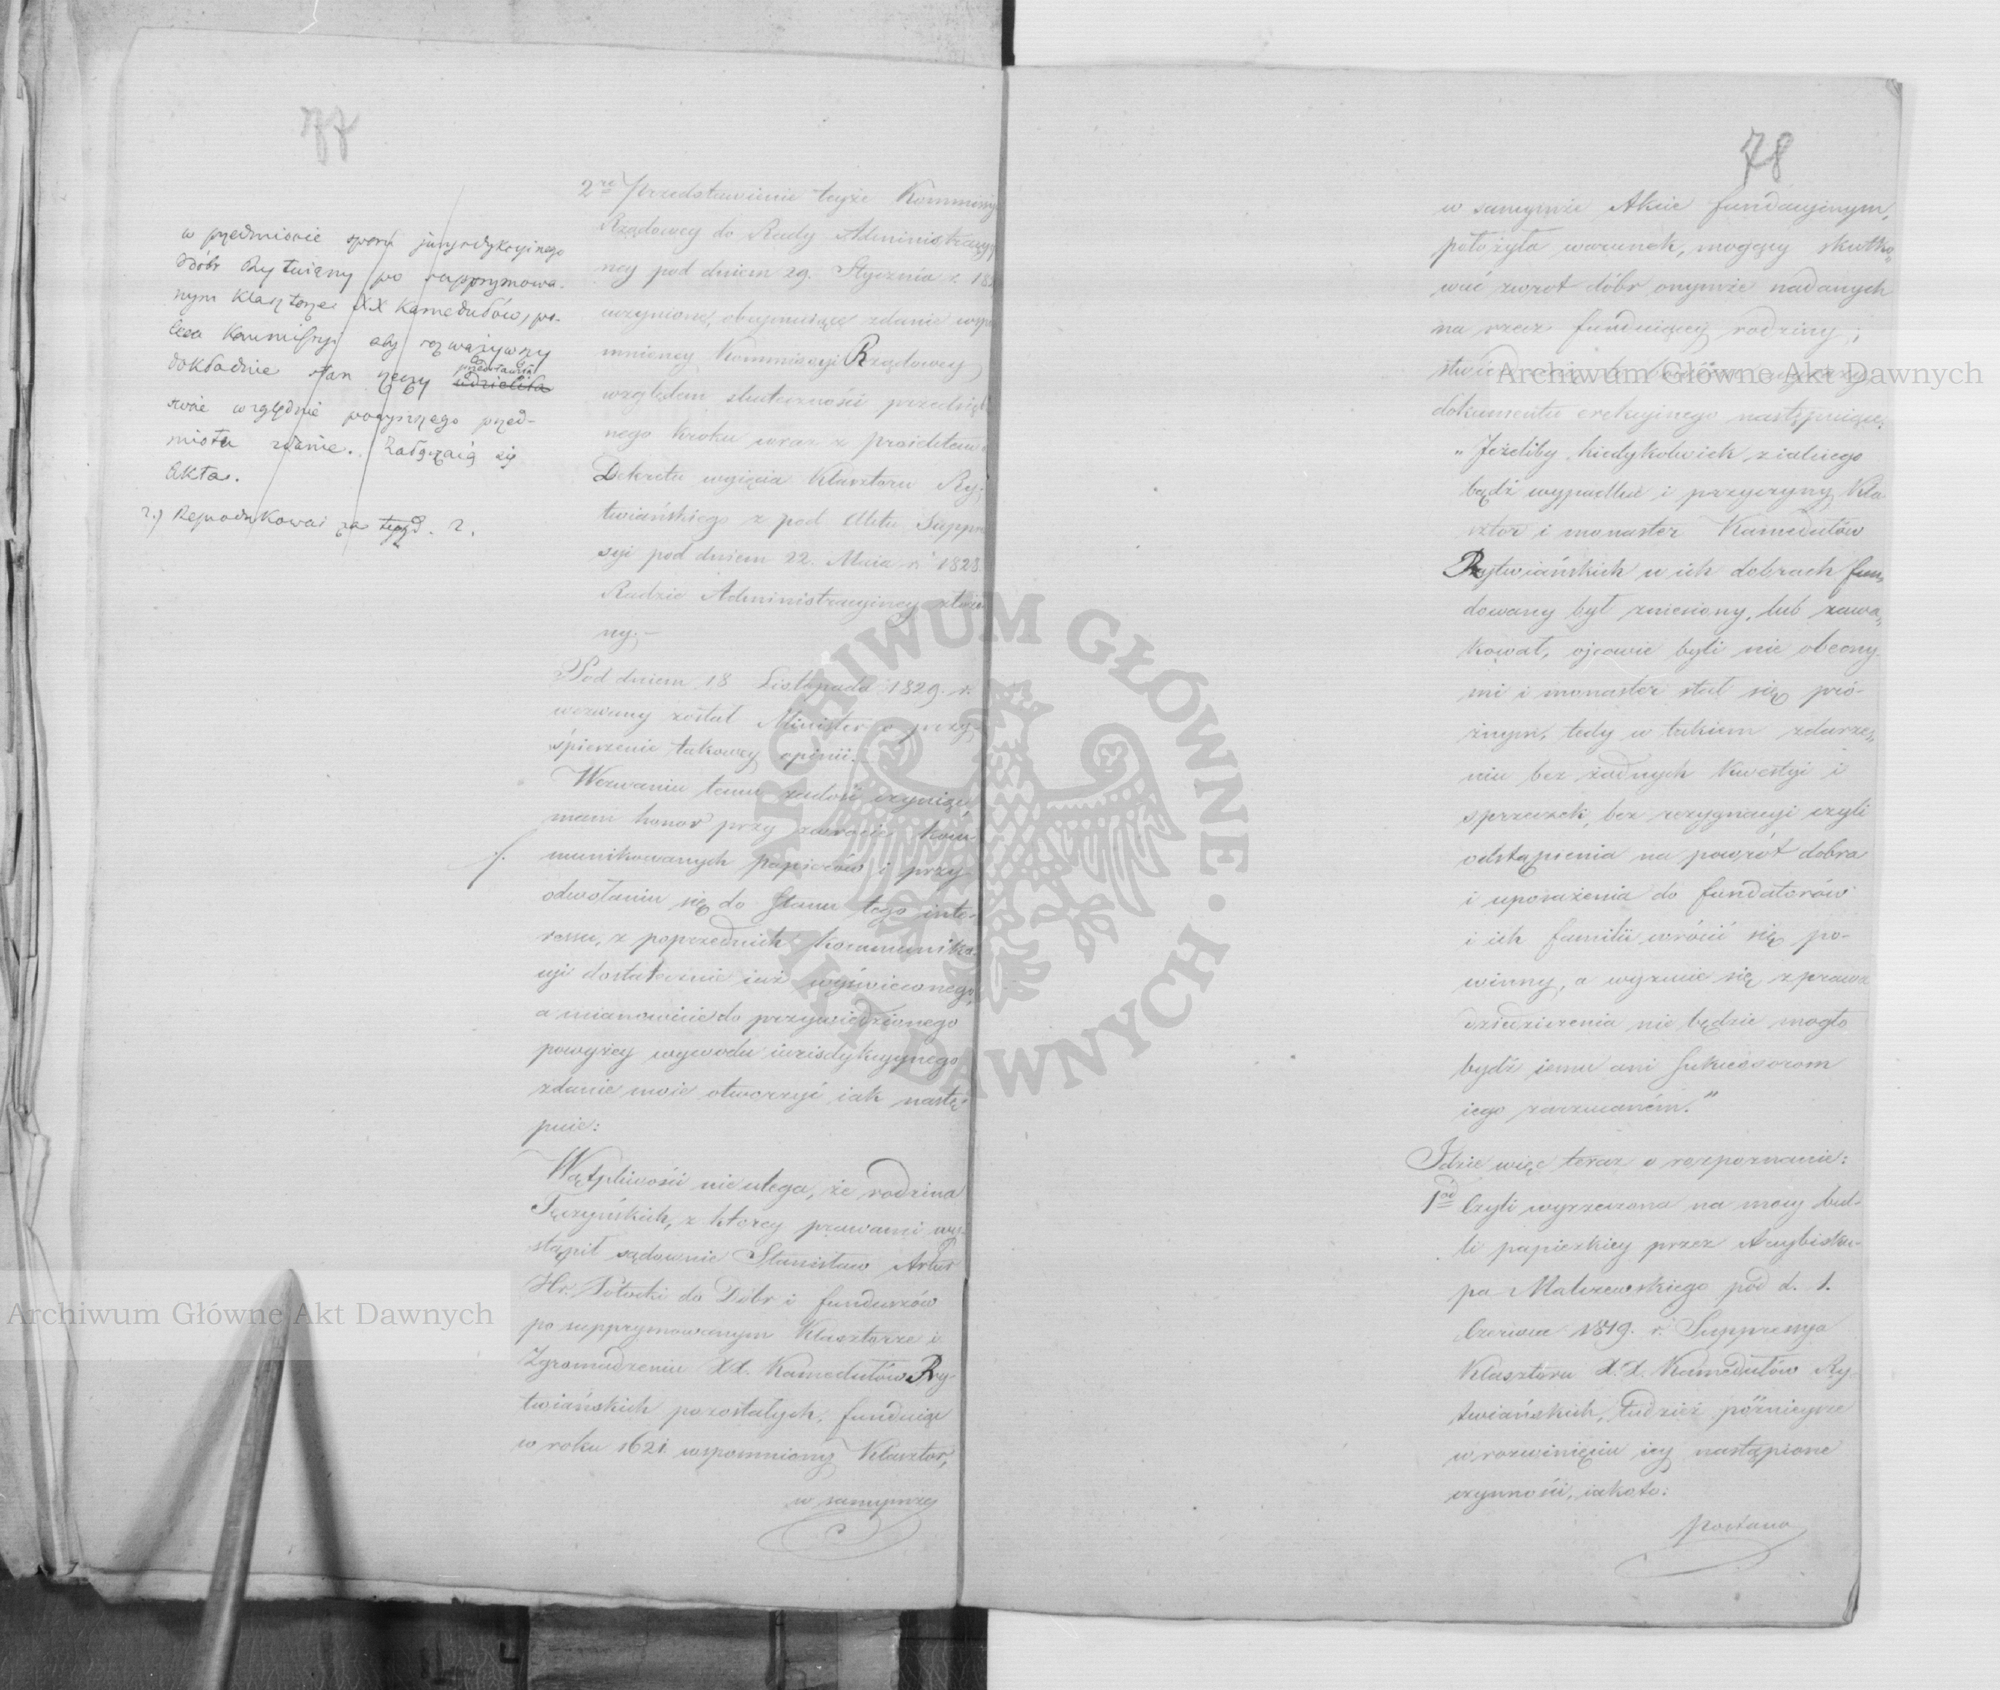 77
w przedmiocie sporu jurysdykcyjnego
dóbr Rytwiany po supprymowa-
nym klasztorze XX Kamedułów, po-
leca Kommissyi aby rozważywszy
dokładnie stan rzeczy udzieliła
przedstawiła
swoie względnie powyższego przed-
miotu zdanie. Załączaią się
Akta.
2.) Reprodukować za tygd. 2.
2re Przedstawienie teyże Kommissyi
Rządowey do Rady Administracyy
ney pod dniem 29. Stycznia r. 182
uczynione, obeymuiące zdanie wspo
mnioney Kommissyi Rządowey
względem skuteczności przedsięb
nego kroku wraz z proiektem
Dekretu wyięcia Klasztoru Ry-
twiańskiego z pod Aktu Suppre
syi pod dniem 22. Maia r. 1828.
Radzie Administracyiney złożo
ny.-
Pod dniem 18 Listopada 1829. r.
wezwany został Minister o przy-
śpieszenie takowey opinii.
Wezwaniu temu zadość czyniąc,
mam honor przy zwrocie kom-
munikowanych papierów i przy
odwołaniu się do Stanu tego inte-
ressu, z poprzednich kommunika-
cyi dostatecznie iuż wyświeconego,
a mianowicie do przywiedzionego
powyżey wywodu iurisdykcyynego
zdanie moie otworzyć iak nastę-
puie:
Wątpliwości nie ulega, że rodzina
Tęczyńskich, z którey prawami wy-
stąpił sądownie Stanisław Artur
Hr. Potocki do Dóbr i funduszów
po supprymowanym Klasztorze i
Zgromadzeniu XX. Kamedułów Ry-
twiańskich pozostałych, funduiąc
w roku 1621 wspomniony Klasztor,
w samymże
78
w samymże Akcie fundacyinym,
położyła warunek, mogący skutko-
wać zwrot dóbr onymże nadanych
na rzecz funduiącey rodziny;
dokumentu erekcyinego następuiące:
"Jeżeliby kiedykolwiek z iakiego
bądź wypadku i przyczyny Kla
sztor i monaster Kamedułów
Rytwiańskich w ich dobrach fun-
dowany był zniesiony, lub zawa-
kował, oycowie byli nie obecny-
mi i monaster stał się pró-
żnym, tedy w takiem zdarze-
niu bez żadnych kwestyi i
sprzeczek, bez rezygnacyi czyli
odstąpienia na powrót dobra
i uposażenia do fundatorów
i ich familii wrócić się po-
winny, a wyzucie się z prawa
dziedziczenia nie będzie mogło
bydź iemu ani Sukcessorom
iego zarzucaném."
Idzie więc teraz o rozpoznanie:
1od Czyli wyrzeczona na mocy bul-
li papiezkiey przez Arcybisku-
pa Malczewskiego pod d. 1.
Czerwca 1819. r. Suppressya
Klasztoru X.X. Kamedułów Ry-
twiańskich, tudzież późnieysze
w rozwinięciu iey nastąpione
czynności, iakoto:
postano
Archiwum Główne Akt Dawnych
Archiwum Główne Akt Dawnych
ARCHIWUM GŁÓWNE · AKT DAWNYCH ·